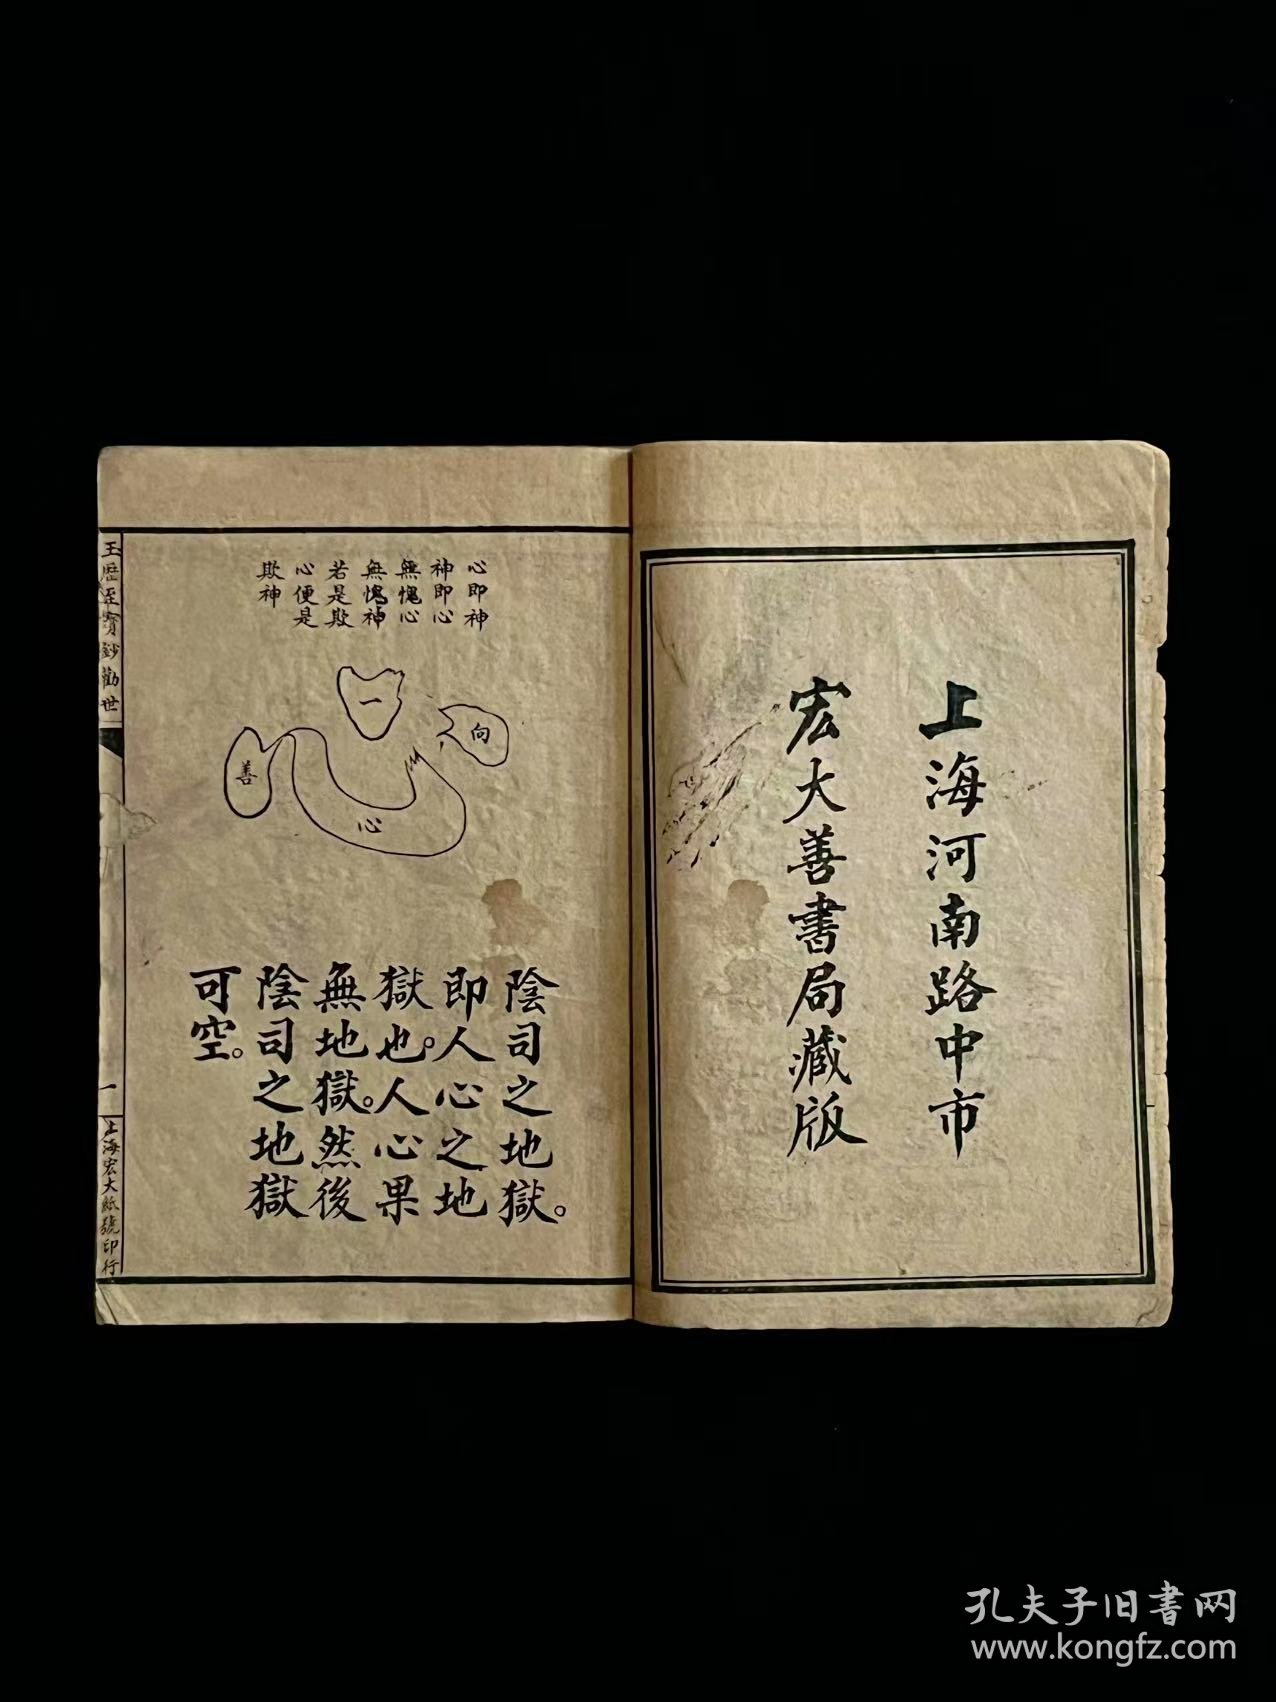 上海河南路中市
宏大善書局藏版
心即神
神即心
無愧心
無愧神
若是欺
心便是
欺神
一
向
善
心
陰司之地獄。
即人心之地
獄也。人心果
無地獄。然後
陰司之地獄
可空。
玉歷至寶鈔勸世
一
上海宏大紙號印行
孔夫子旧書网
www.kongfz.com